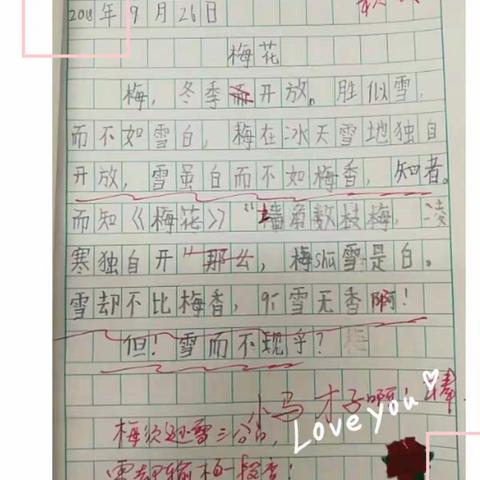 2018年9月26日
梅花
梅，冬季开放。胜似雪，
而不如雪白，梅在冰天雪地独自
开放，雪虽白而不如梅香，知者。
而知《梅花》“墙角数枝梅，凌
寒独自开”那么，梅shu雪是白。
雪却不比梅香，雪无香啊！
但！雪而不现乎？
小马才子啊！棒
Love you
梅须逊雪三分白，
雪却输梅一段香！